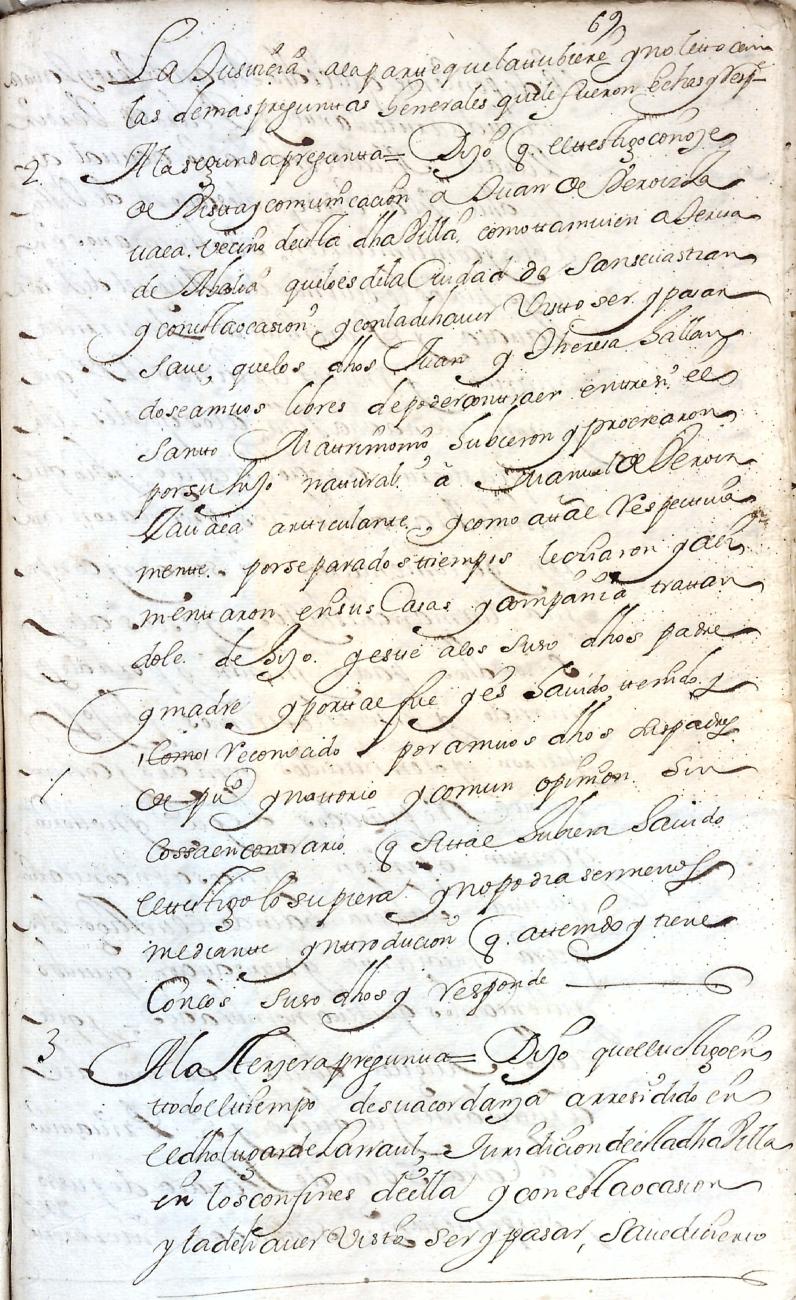 69
La Justicia a la parte que la tubiere y no le to can
las demas preguntas Generales que le fueron hechas y Resp.
2 A la segunda pregunta = Dijo q. el testigo conoze
de Vista y comunicacion à Juan de Beroiz La
vaca. Vecino de esta dha Villa. como tamuien a Teresa
de que lo es de la Ciudad de San seuastian
y con esta ocasion, y con la de hauer Visto ser y pasar
saue, que los dhos Juan y Theresa hallan
dose amuos libres de poder contraer entre si el
santo Matrimonio hubieron y procrearon
por su hijo natural à Manuel de Beroiz
Lauaca articulante, y como a tal Respectiua
mente. por separados tiempos le criaron y ali
mentaron en sus Casas y compañia tratan
dole de hijo. y este a los suso dhos padre
y madre y por tal fue y es hauido tenido y
Como reconocido por amuos dhos sus padres
de puco y nottorio y comun opinion sin
Cossa en contrario q si tal hubiera hauido
el testigo lo supiera y no podia ser menos
mediante yntroducion q. a tenido y tiene
Con los suso dhos y responde
3 A la terzera pregunta = Dijo que el testigo en
todo el tiempo de su acordanza a rresidido en
el dho lugar de Larraul, Juridicion de esta dha Villa
en los confines de ella y con esta ocasion
y la de hauer Visto ser y pasar, saue de cierto